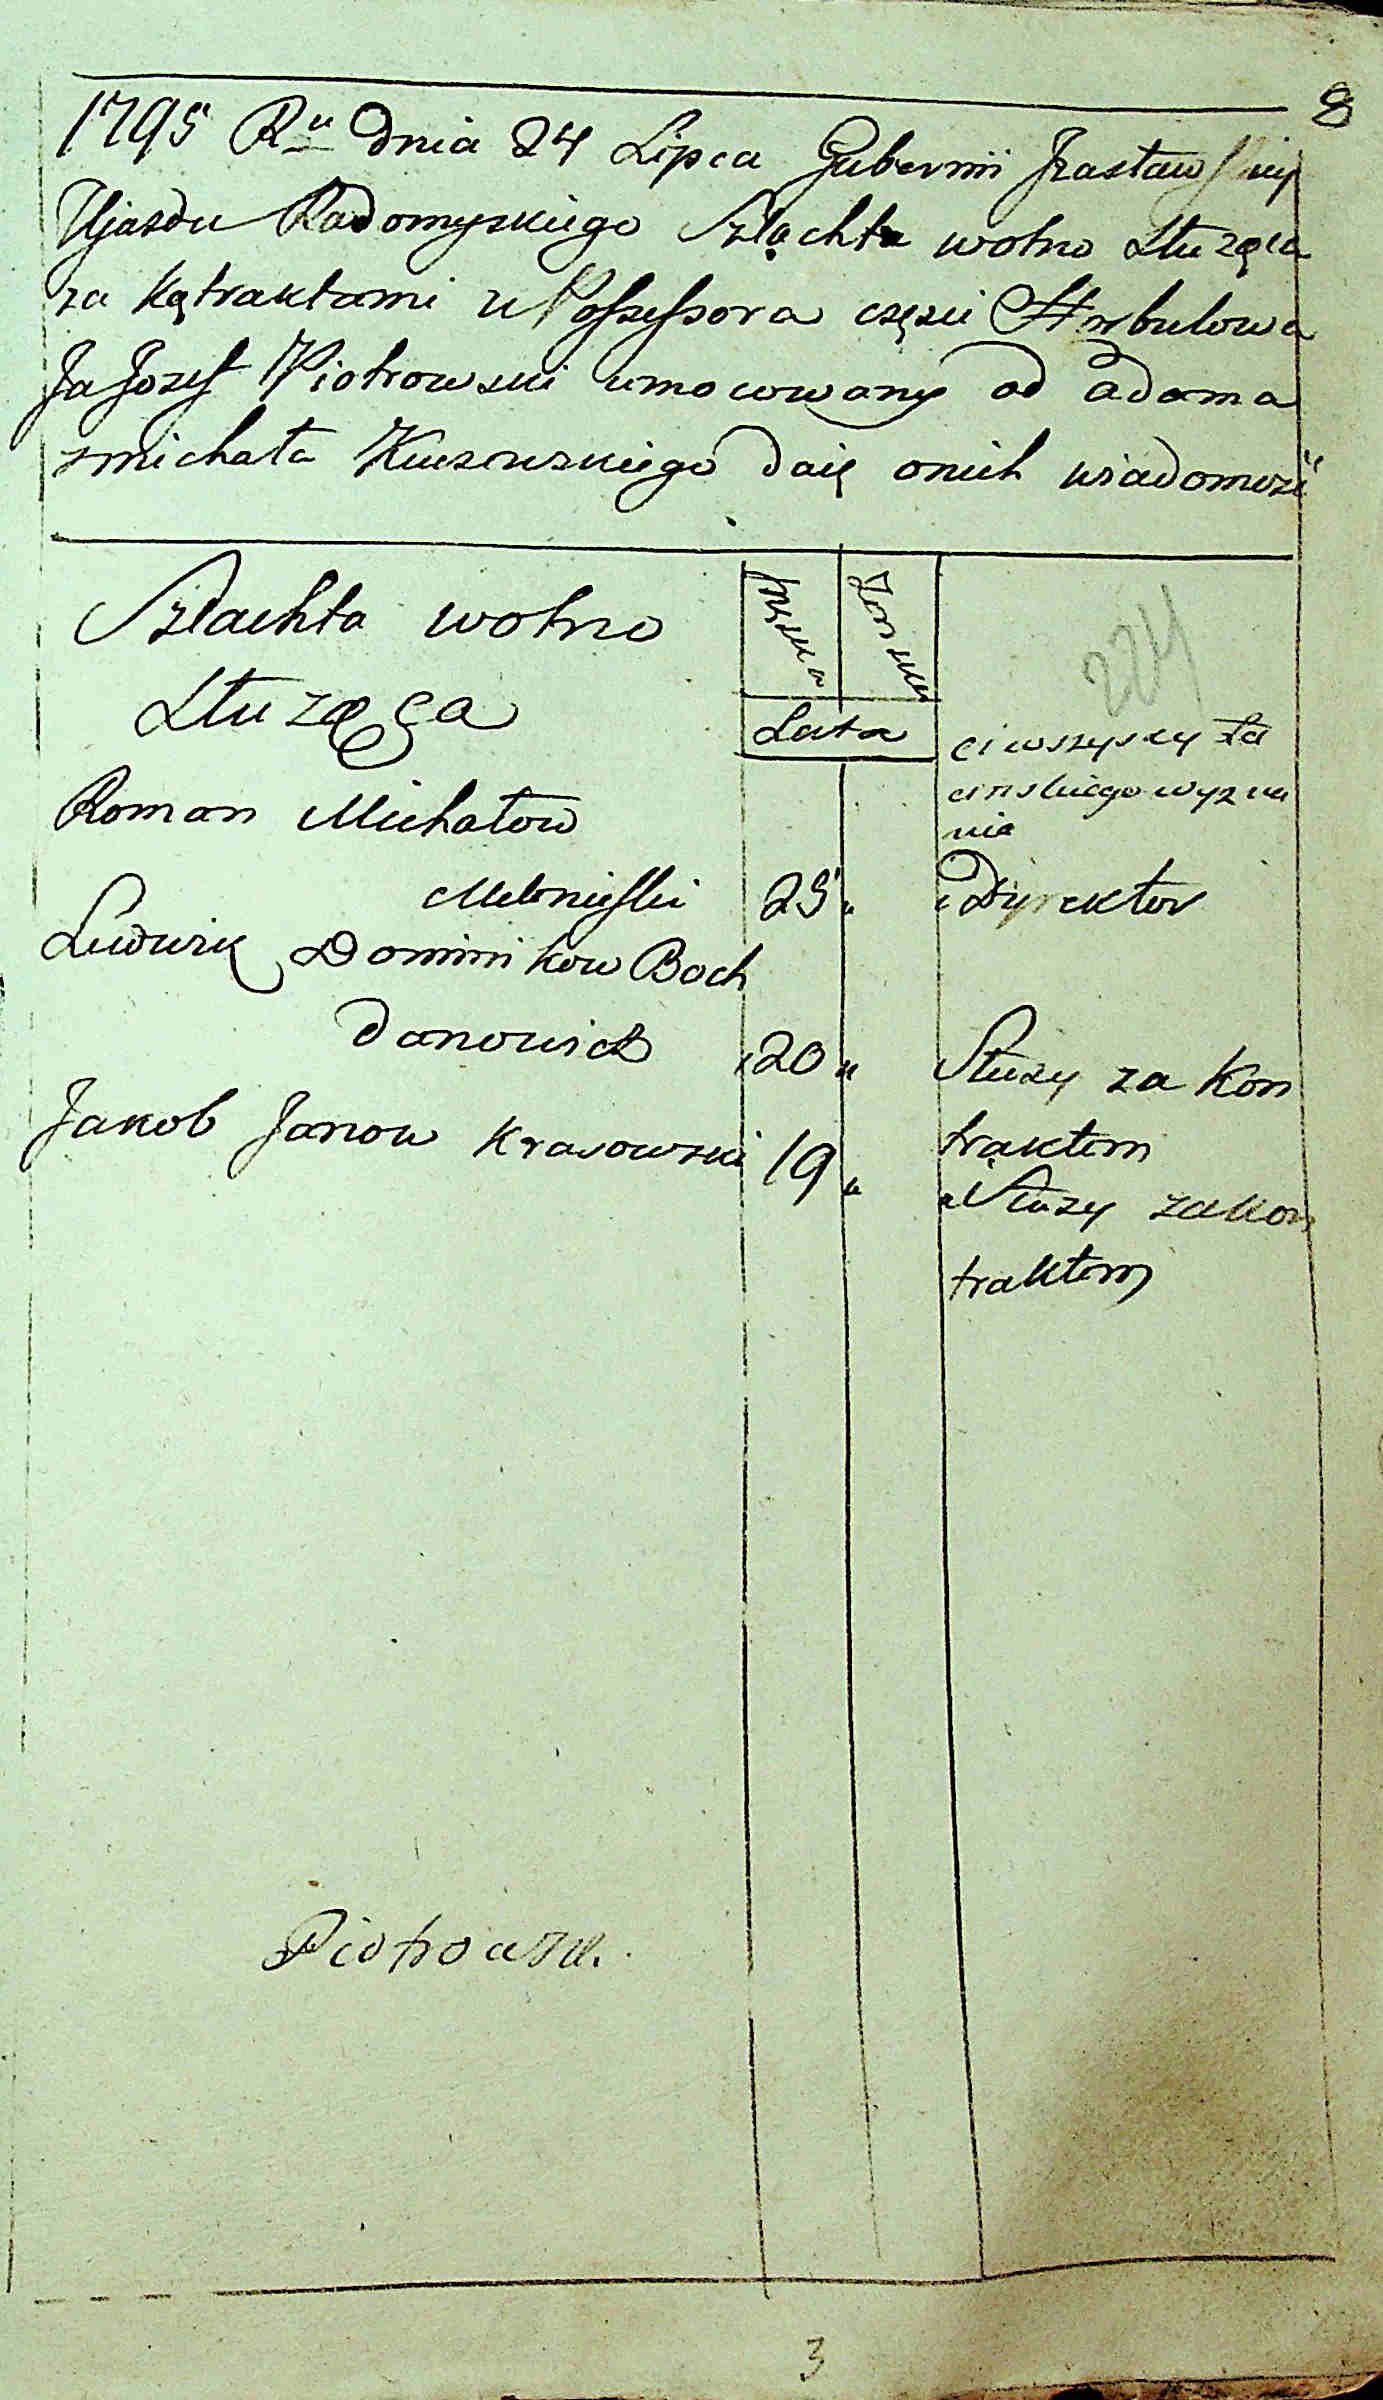 8
1795 Ru dnia 24 Lipca Gubernii Jzasław
Ujazdu Radomyskiego Szlachta wolno Służąca
za kątraktami u Possessora częsci Horbulowa
Ja Jozef Piotrowski umocowany od adama
zmichała daię onich wiadomość
Szlachta wolno
Służąca
Męzka Zenska
Lata
224
ci wszyscy ła
cinskiego wyzna
nia
Roman Michałow
25 Dyrektor
Ludwik Dominikow Boch
danowicz 20 Służy za kon
traktem
Jakob Janow Krasowski 19 Służy zakon
traktem
Piotrowski
3